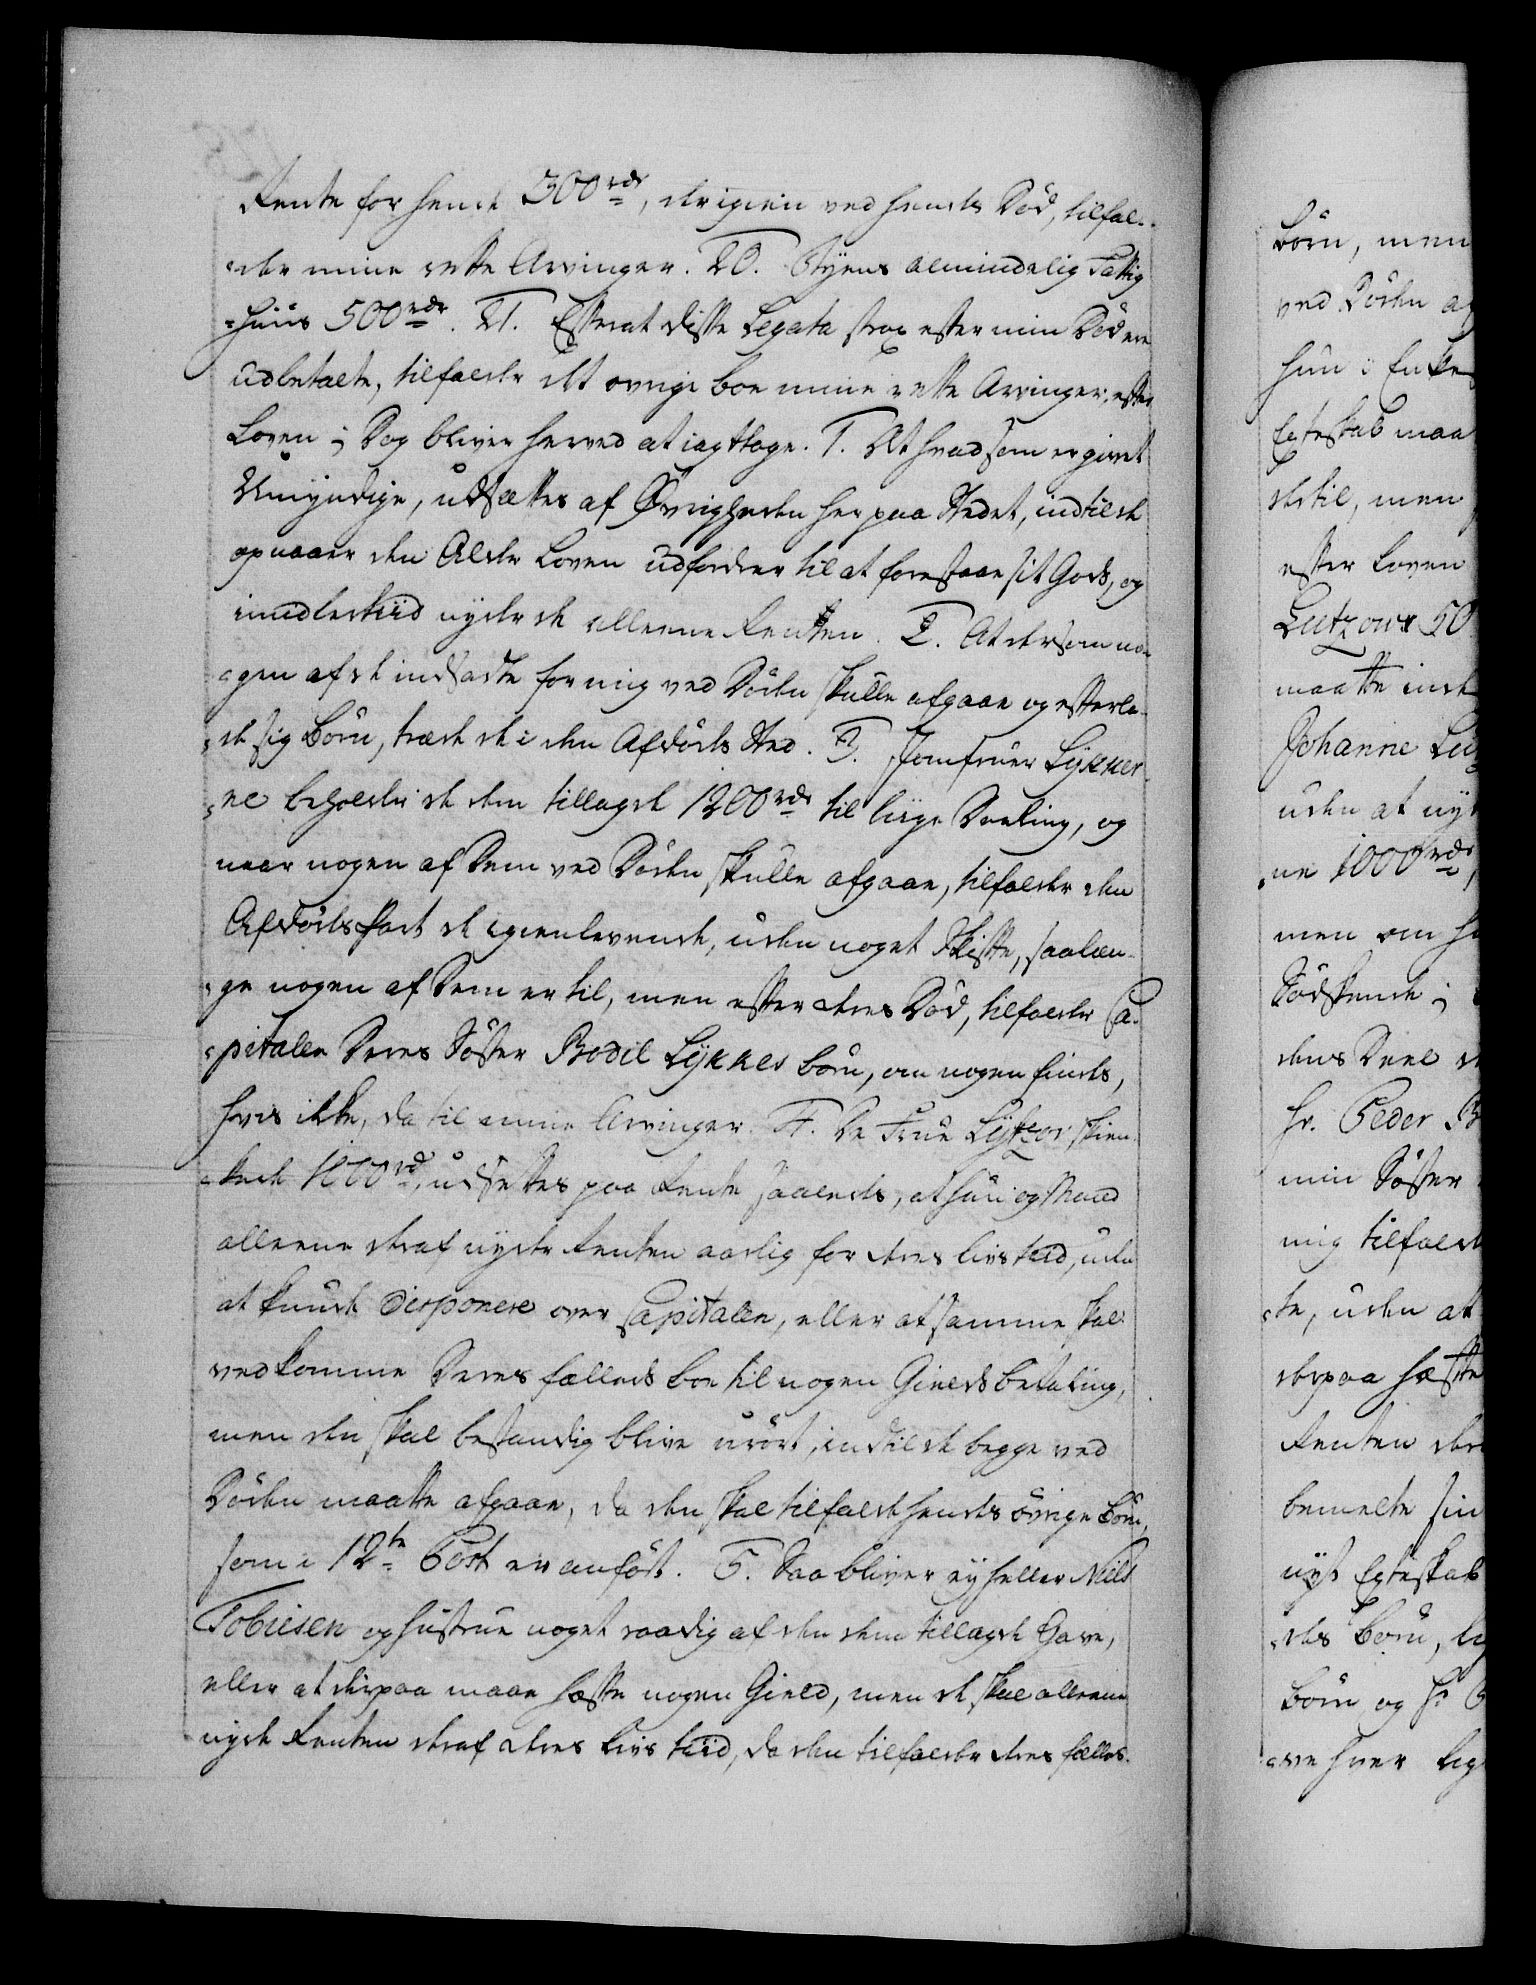 Rente for hende 300 rdr, der igien ved hendes Död, tilfal-
der mine rette Arvinger. 20. Fyens almindelig Fattig
huus 500 rdr. 21. Efterat disse Legata strax efter min Död ere
udbetalte, tilfalder det ovrige boe mine rette Arvinger, efter
Loven; Dog bliver herved at iagttage. 1. At hvad som er givet
Umyndige, udsættes af Øvrigheden her paa Stedet, indtil de
opnaaer den Alder Loven udfordrer til at forestaae sit Gods, og
imidlertiid nyder de alleene Renten. 2. At dersom no-
gen af de indsadte for mig ved Döden skulle afgaae og efterla-
de sig Börn, træde de i den Afdödes Sted. 3. Jomfruer Lykker
ne beholder de dem tillagde 1200 rdr til liige Deeling, og
naar nogen af Dem ved Döden skulle afgaae, tilfalder den
Afdödes Part de igienlevende, uden noget Skifte, saalæn-
ge nogen af Dem er til, men efter deres Död, tilfalder Ca-
pitalen Deres Söster Bodil Lykkes börn, om nogen findes,
hvis ikke, da til mine Arvinger. 4. De Frue Lützov skien-
kede 1000 rdr, udsettes paa Rente saaledes, at hun og Mand
alleene deraf nyder Renten aarlig for deres livs tiid, uden
at kunde disponere over Capitalen, eller at samme skal
vedkomme Deres fælleds boe til nogen Gields betaling,
men den skal bestandig blive urört, indtil de begge ved
Döden maatte afgaae, da den skal tilfalde hendes övrige Börn,
som i 12te Post er anfört. 5. Saa bliver ey heller Niels
Tobiesen og hustrue noget raadig af den dem tillagde Gave,
eller at derpaa maae hæfte nogen Gield, men de skal alleene
nyde Renten deraf deres livs tiid, da den tilfalder deres fælles
börn, men
ved Döden af
hun i Enke
Egteskab maa
dertil, men
efter Loven
Lutzow 50
maatte
Johanne
uden at
ne 1000 rdr,
men om
Södskende;
dens Deel
hr. Peder
min Söster
mig tilfalde
te, uden at
derpaa hæfte
Renten
bemelte
nyt Egteskab
des Börn,
börn og hr
hver